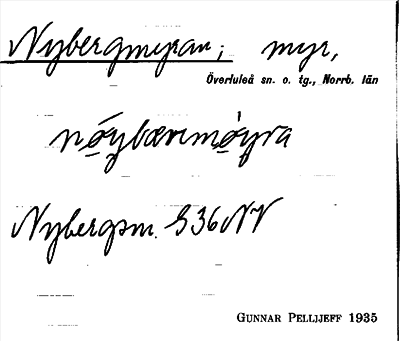 Nybergmyran; myr,
Överluleå sn. o. tg., Norrb. län
nǿybærimǿyra
Nybergsm. S36NV
GUNNAR PELLIJEFF 1935